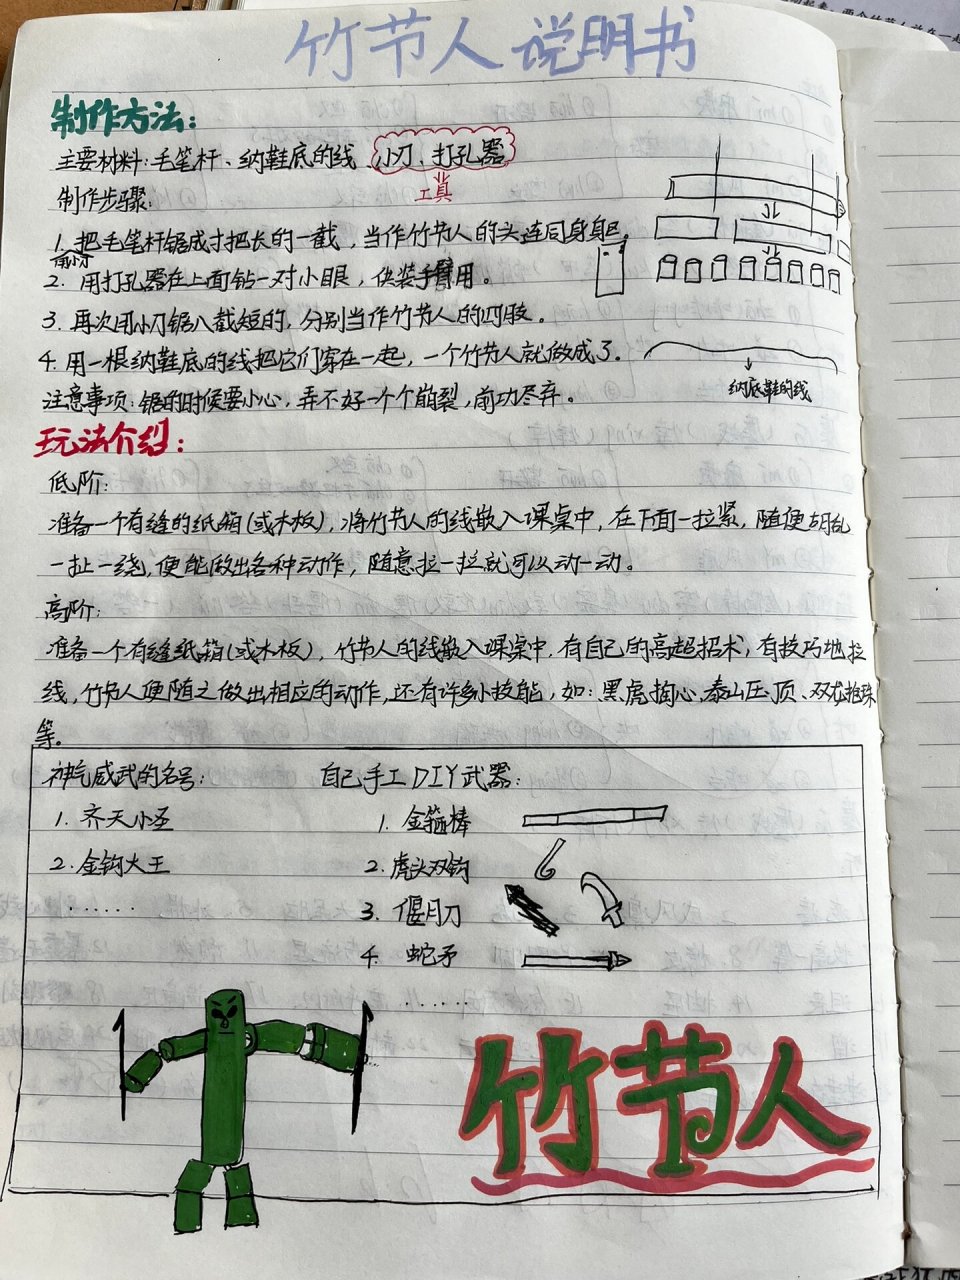 竹节人说明书
制作方法:
主要材料:毛笔杆、纳鞋底的线 小刀、打孔器
工具
制作步骤:
1. 把毛笔杆锯成寸把长的一截,当作竹节人的头连同身身区。
2. 用打孔器在上面钻一对小眼,供装手臂用。
3. 再次用小刀锯八截短的,分别当作竹节人的四肢。
4. 用一根纳鞋底的线把它们穿在一起,一个竹节人就做成了。
纳底鞋的线
注意事项:锯的时候要小心,弄不好一个个崩裂,前功尽弃。
玩法介绍:
低阶:
准备一个有缝的纸箱(或木板),将竹节人的线嵌入课桌中,在下面一拉紧,随便胡乱
一扯一绕,便能做出各种动作,随意拉一拉就可以动一动。
高阶:
准备一个有缝纸箱(或木板),竹节人的线嵌入课桌中,有自己的高超招术,有技巧地拉
线,竹节人便随之做出相应的动作,还有许多小技能,如:黑虎掏心、泰山压顶、双龙抢珠
等。
神气威武的名号: 自己手工DIY武器:
1. 齐天小圣 1. 金箍棒
2. 金钩大王 2. 虎头双钩
...... 3. 偃月刀
4. 蛇矛
......
竹节人